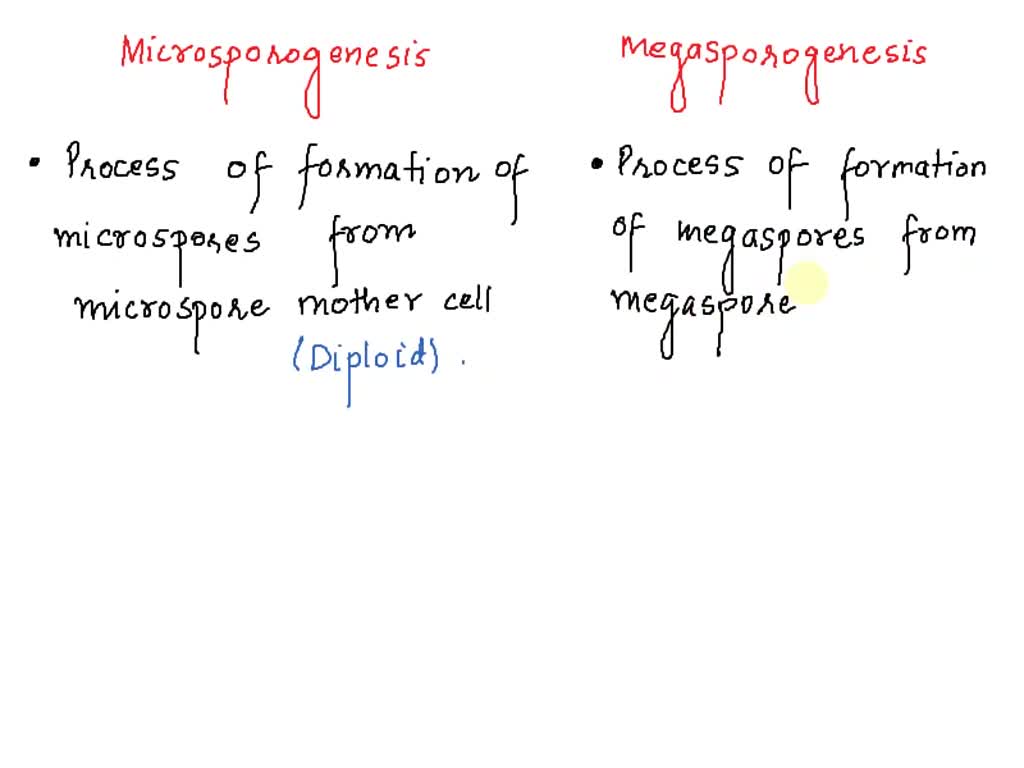 Microsporogenesis
• Process of formation of
microspores from
microspore mother cell
(Diploid) .
Megasporogenesis
• Process of formation
of megaspores from
megaspore